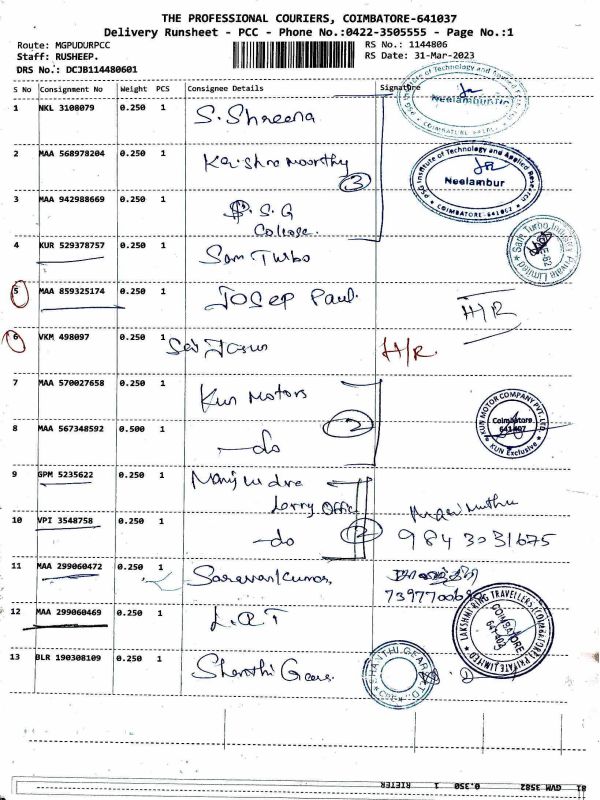 THE PROFESSIONAL COURIERS, COIMBATORE-641037
Delivery Runsheet - PCC - Phone No.:0422-3505555 - Page No.:1
Route: MGPUDURPCC
RS No.: 1144806
Staff: RUSHEEP.
RS Date: 31-Mar-2023
DRS No.: DCJB114480601
S No Consignment No Weight PCS Consignee Details Signature
1 NKL 3108079 0.250 1 S. Shreena
Neelambur
2 MAA 568978204 0.250 1 Krishna moorthy
3
PSG Institute of Technology and Applied Research
Neelambur
COIMBATORE-641062
3 MAA 942988669 0.250 1 P.S.G
College.
4 KUR 529378757 0.250 1 Sam Turbo
Sam Turbo Industry Private Limited
5 MAA 859325174 0.250 1 Josep Paul.
H/R
6 VKM 498097 0.250 1 Sai
H/R
7 MAA 570027658 0.250 1 Kun Motors
KUN MOTOR COMPANY PVT. LTD.
Coimbatore
641407
KUN Exclusive
8 MAA 567348592 0.500 1 -do
2
9 GPM 5235622 0.250 1
Lorry Office
10 VPI 3548758 0.250 1 -do
2
9843031675
11 MAA 299060472 0.250 1 Saravankumar,
12 MAA 299060469 0.250 1 L.R.T
LAKSHMI RING TRAVELLERS (COIMBATORE) PRIVATE LIMITED
COIMBATORE
13 BLR 190308109 0.250 1 Shanthi Gears
SHANTHI GEAR
81 GVM 3582 0.350 1 RIETER